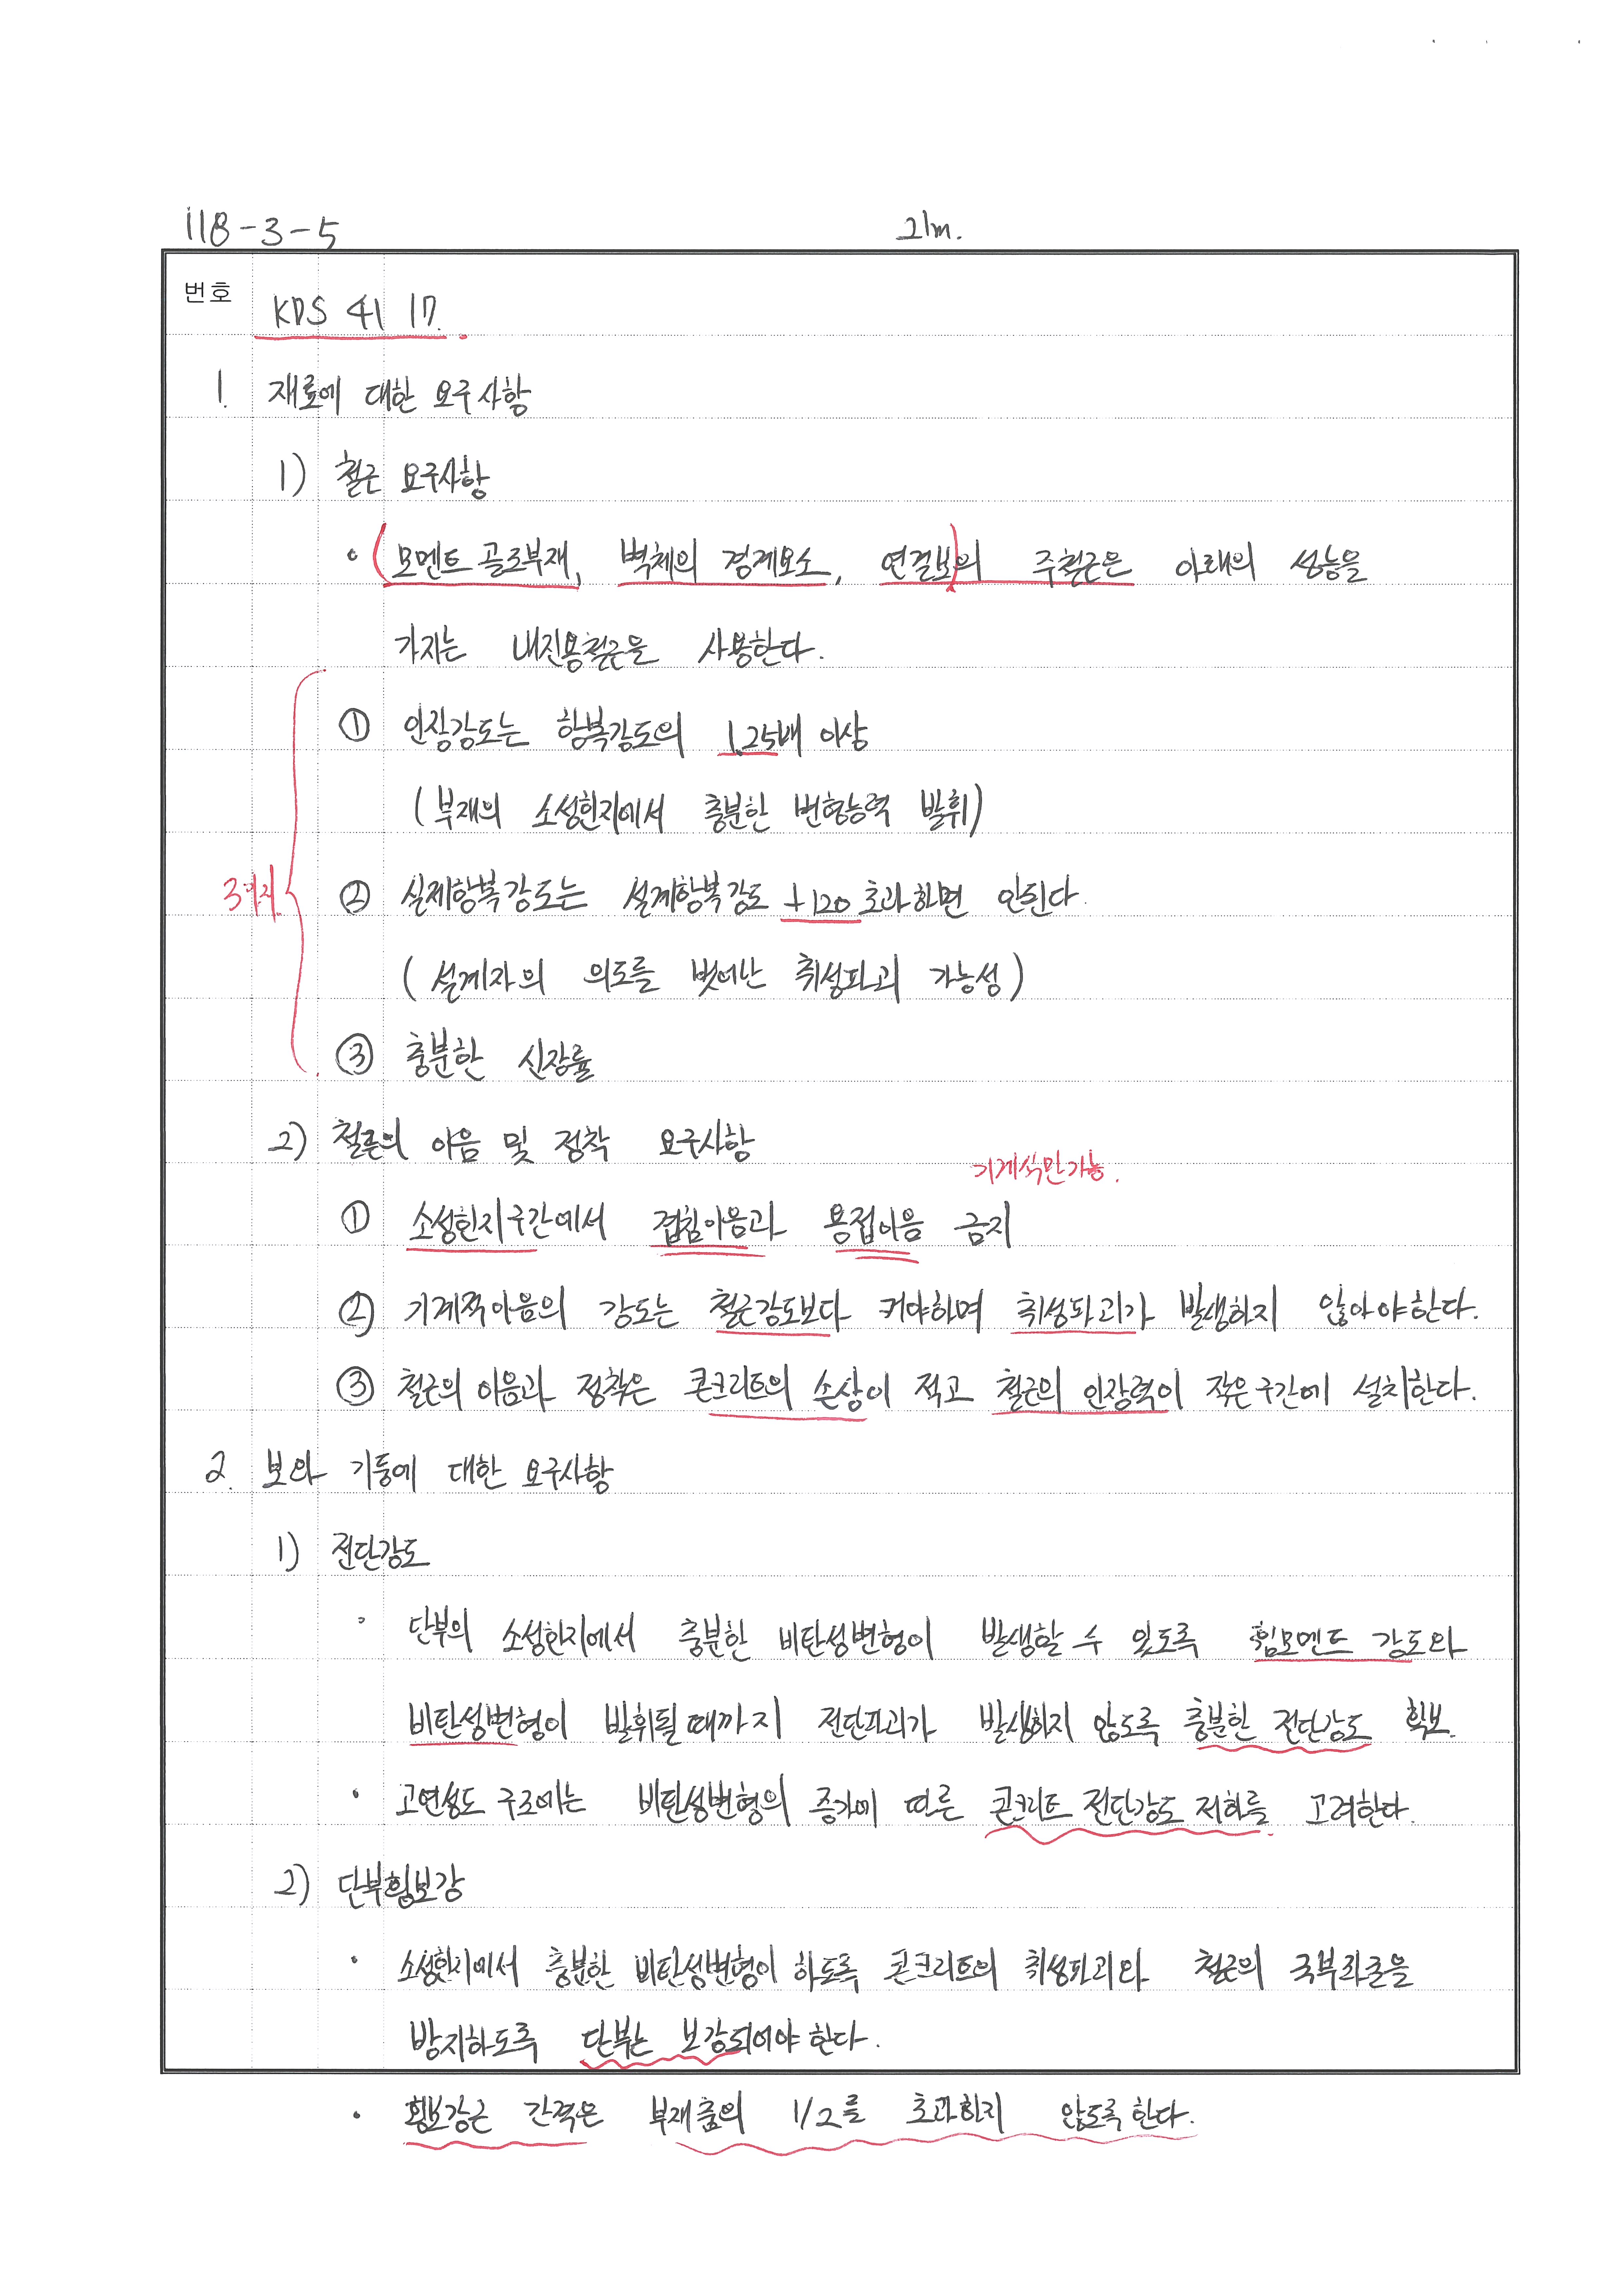 118-3-5
21m.
번호
KDS 41 17.
1. 재료에 대한 요구사항
1) 철근 요구사항
• (모멘트 골조부재, 벽체의 경계요소, 연결보)의 주철근은 아래의 성능을
가지는 내진용철근을 사용한다.
① 인장강도는 항복강도의 1.25배 이상
(부재의 소성힌지에서 충분한 변형능력 발휘)
3가지.
② 실제항복강도는 설계항복강도 +120 초과하면 안된다.
(설계자의 의도를 벗어난 취성파괴 가능성)
③ 충분한 신장률
2) 철근의 이음 및 정착 요구사항
기계식만가능.
① 소성힌지구간에서 겹침이음과 용접이음 금지
② 기계적이음의 강도는 철근강도보다 커야하며 취성파괴가 발생하지 않아야한다.
③ 철근의 이음과 정착은 콘크리트의 손상이 적고 철근의 인장력이 작은구간에 설치한다.
2. 보와 기둥에 대한 요구사항
1) 전단강도
• 단부의 소성힌지에서 충분한 비탄성변형이 발생할 수 있도록 휨모멘트 강도와
비탄성변형이 발휘될때까지 전단파괴가 발생하지 않도록 충분한 전단강도 확보.
• 고연성도 구조에는 비탄성변형의 증가에 따른 콘크리트 전단강도 저하를 고려한다.
2) 단부횡보강
• 소성힌지에서 충분한 비탄성변형이 하도록 콘크리트의 취성파괴와 철근의 국부좌굴을
방지하도록 단부는 보강되어야 한다.
• 횡보강근 간격은 부재춤의 1/2를 초과하지 않도록 한다.